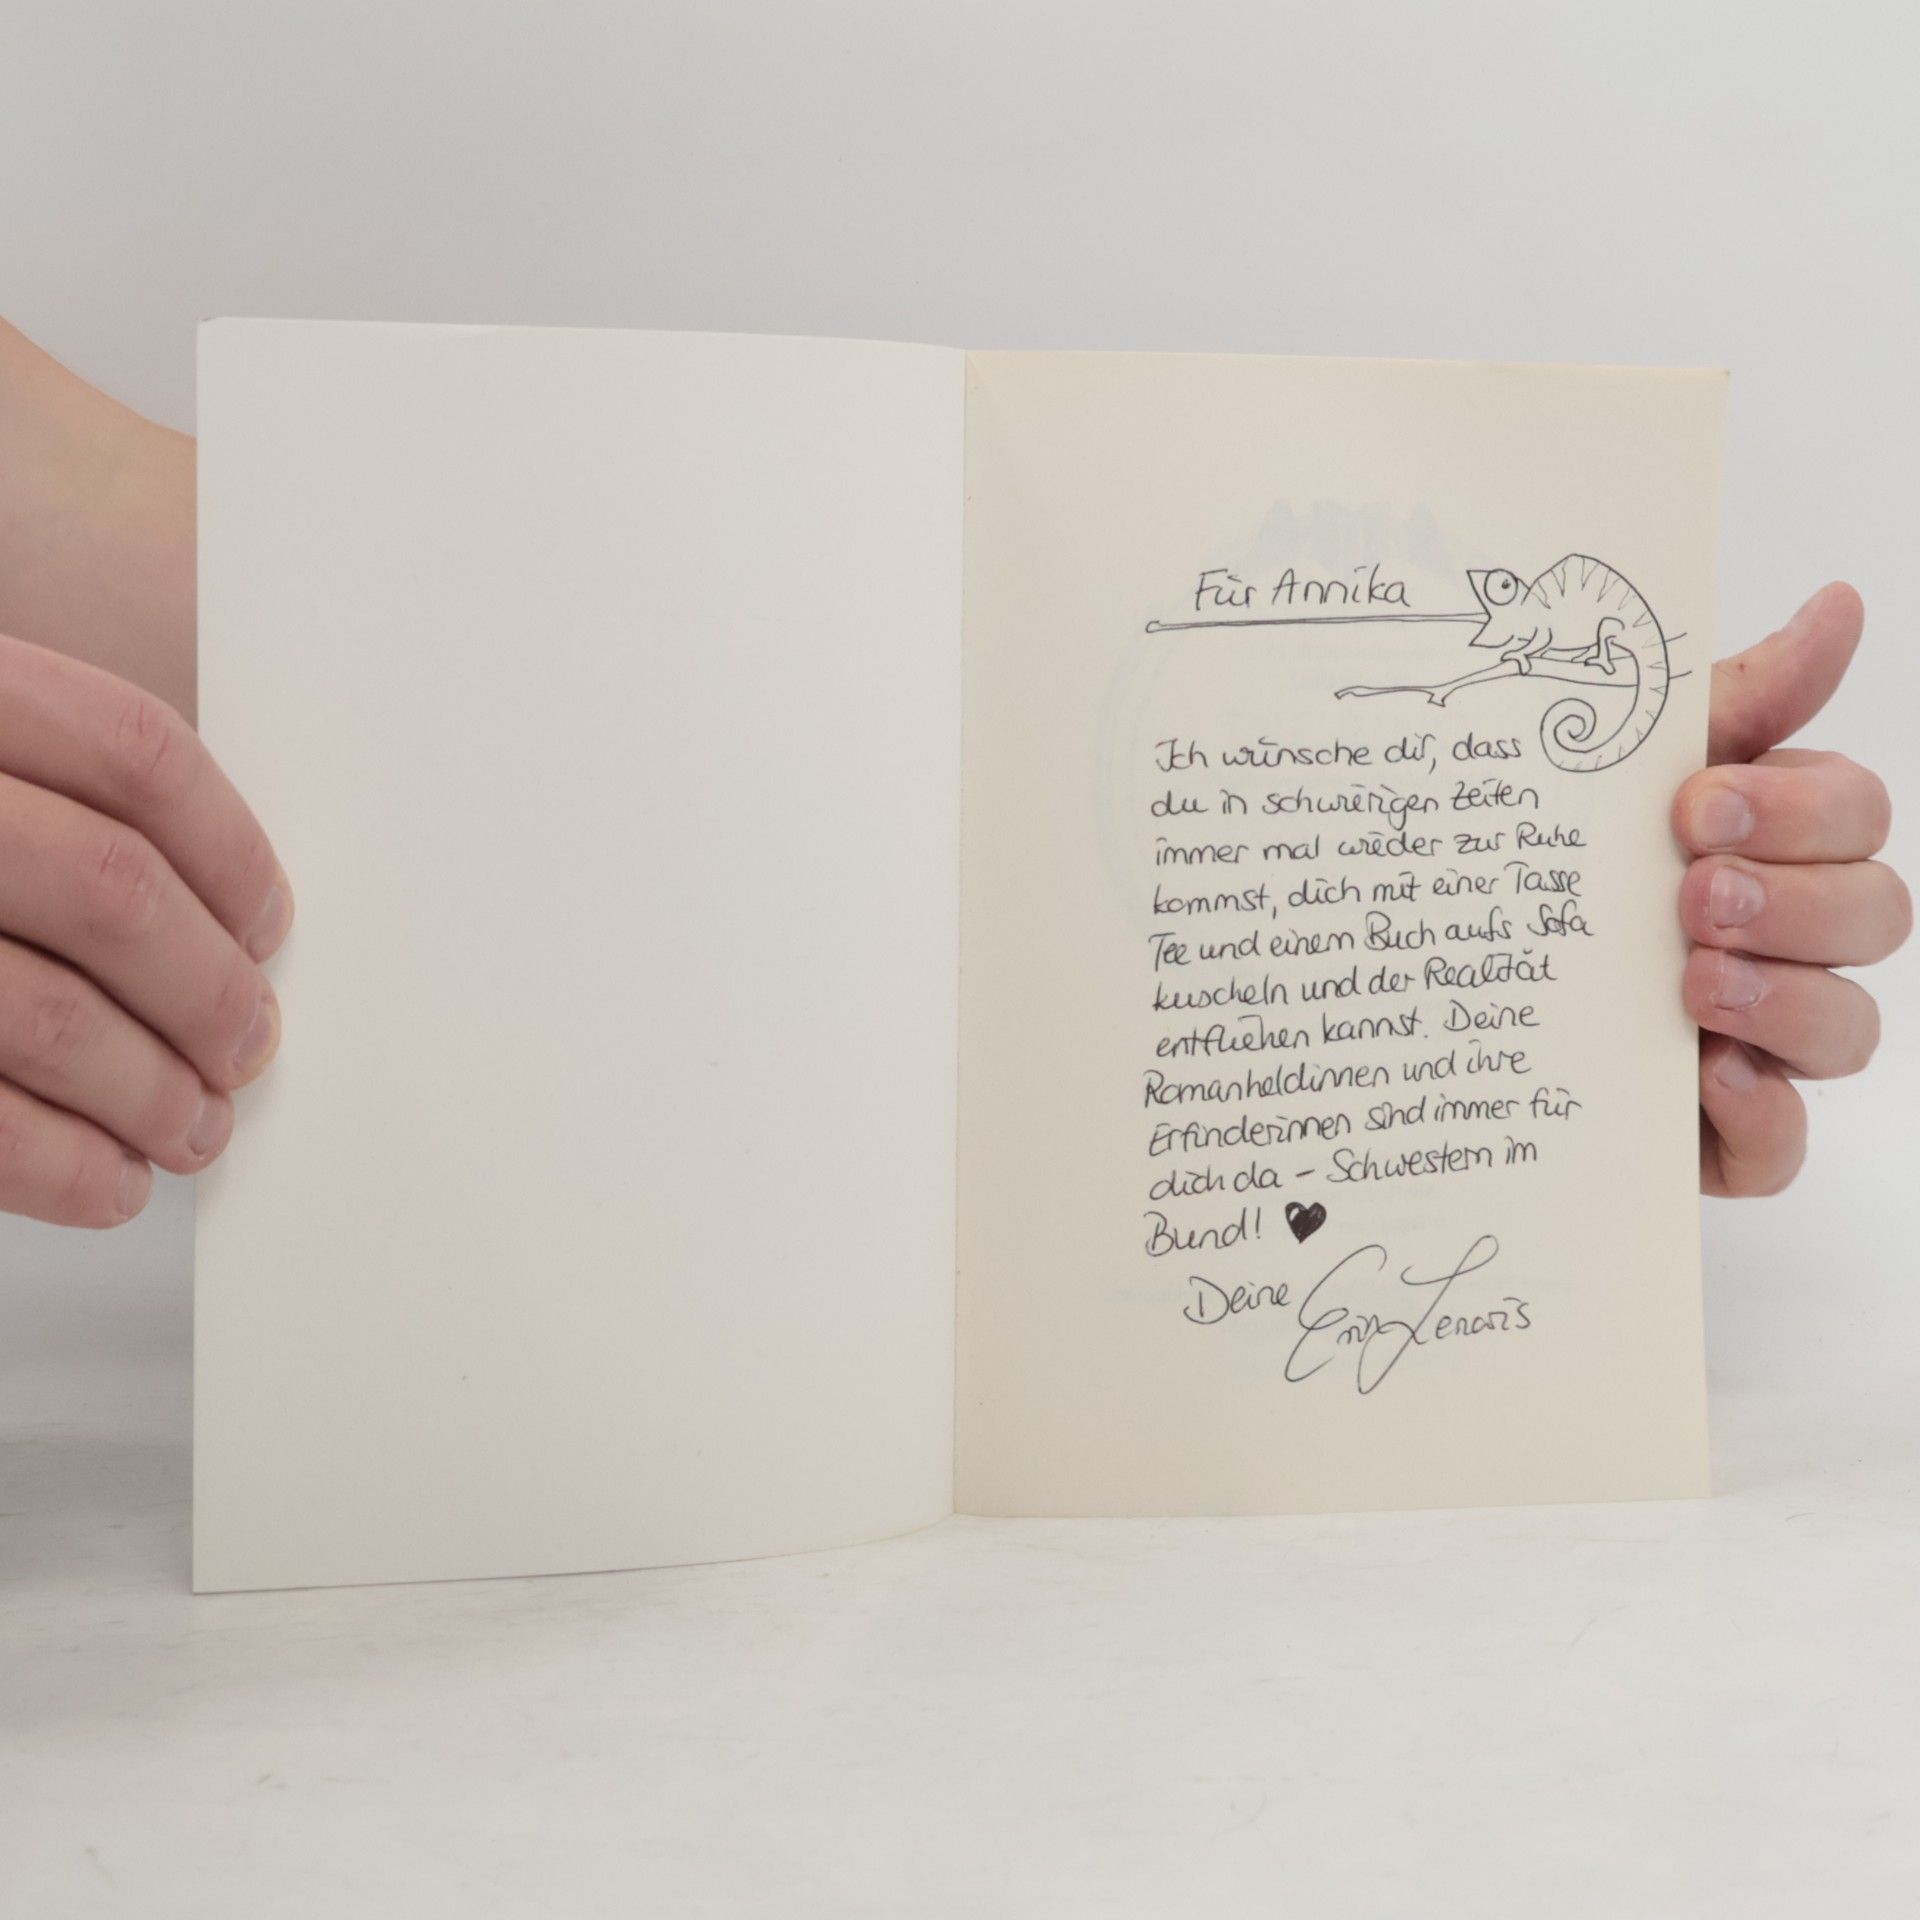 Für Annika
Ich wünsche dir, dass
du in schwierigen Zeiten
immer mal wieder zur Ruhe
kommst, dich mit einer Tasse
Tee und einem Buch aufs Sofa
kuscheln und der Realität
entfliehen kannst. Deine
Romanheldinnen und ihre
Erfinderinnen sind immer für
dich da – Schwestern im
Bund! ♥
Deine Erin Lenaris